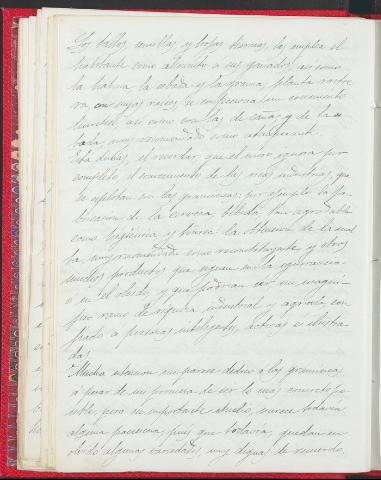 Los tallos, semillas y hojas tiernas, los emplea el
habitante como alimento a sus ganados: así como
la batua, la cebada y la grama, planta rastre
ra en cuyas raices se confecciona un cocimiento
diuretico, así como con las de caña; y de la ce
bada, muy recomendado como atemperante.
el recordar, que el moro ignora por
completo el conocimiento de las ricas industrias, que
se explotan con las gramineas: por ejemplo la fa
bricación de la cerveza bebida tan agradable
como higiénica y tónica; la obtención de la mal
ta, muy recomendada como reconstituyente y otros
muchos productos que siguen en la ignorancia
o en el olvido y que podrian ser un magní
fico ramo de riqueza industrial y agricola con
fiado a personas inteligentes, activas e ilustra
das.
Mucha extensión me parece dedico a las gramineas
a pesar de mi promesa de ser lo más concreto po
sible, pero su importante estudio, merece todavia
alguna paciencia, pues que todavia, quedan en
olvido algunas variedades, muy dignas de recuerdo,